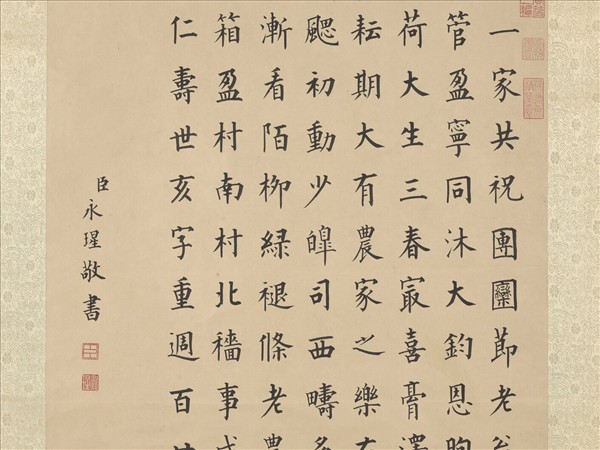 一家共祝團圞節老
管盈寧同沐大鈞恩
荷大生三春㝡喜膏澤
耘期大有農家之樂
颸初動少皥司西疇多
漸看陌柳綠褪條老農
箱盈村南村北穡事成
仁壽世亥字重週百
臣永瑆敬書